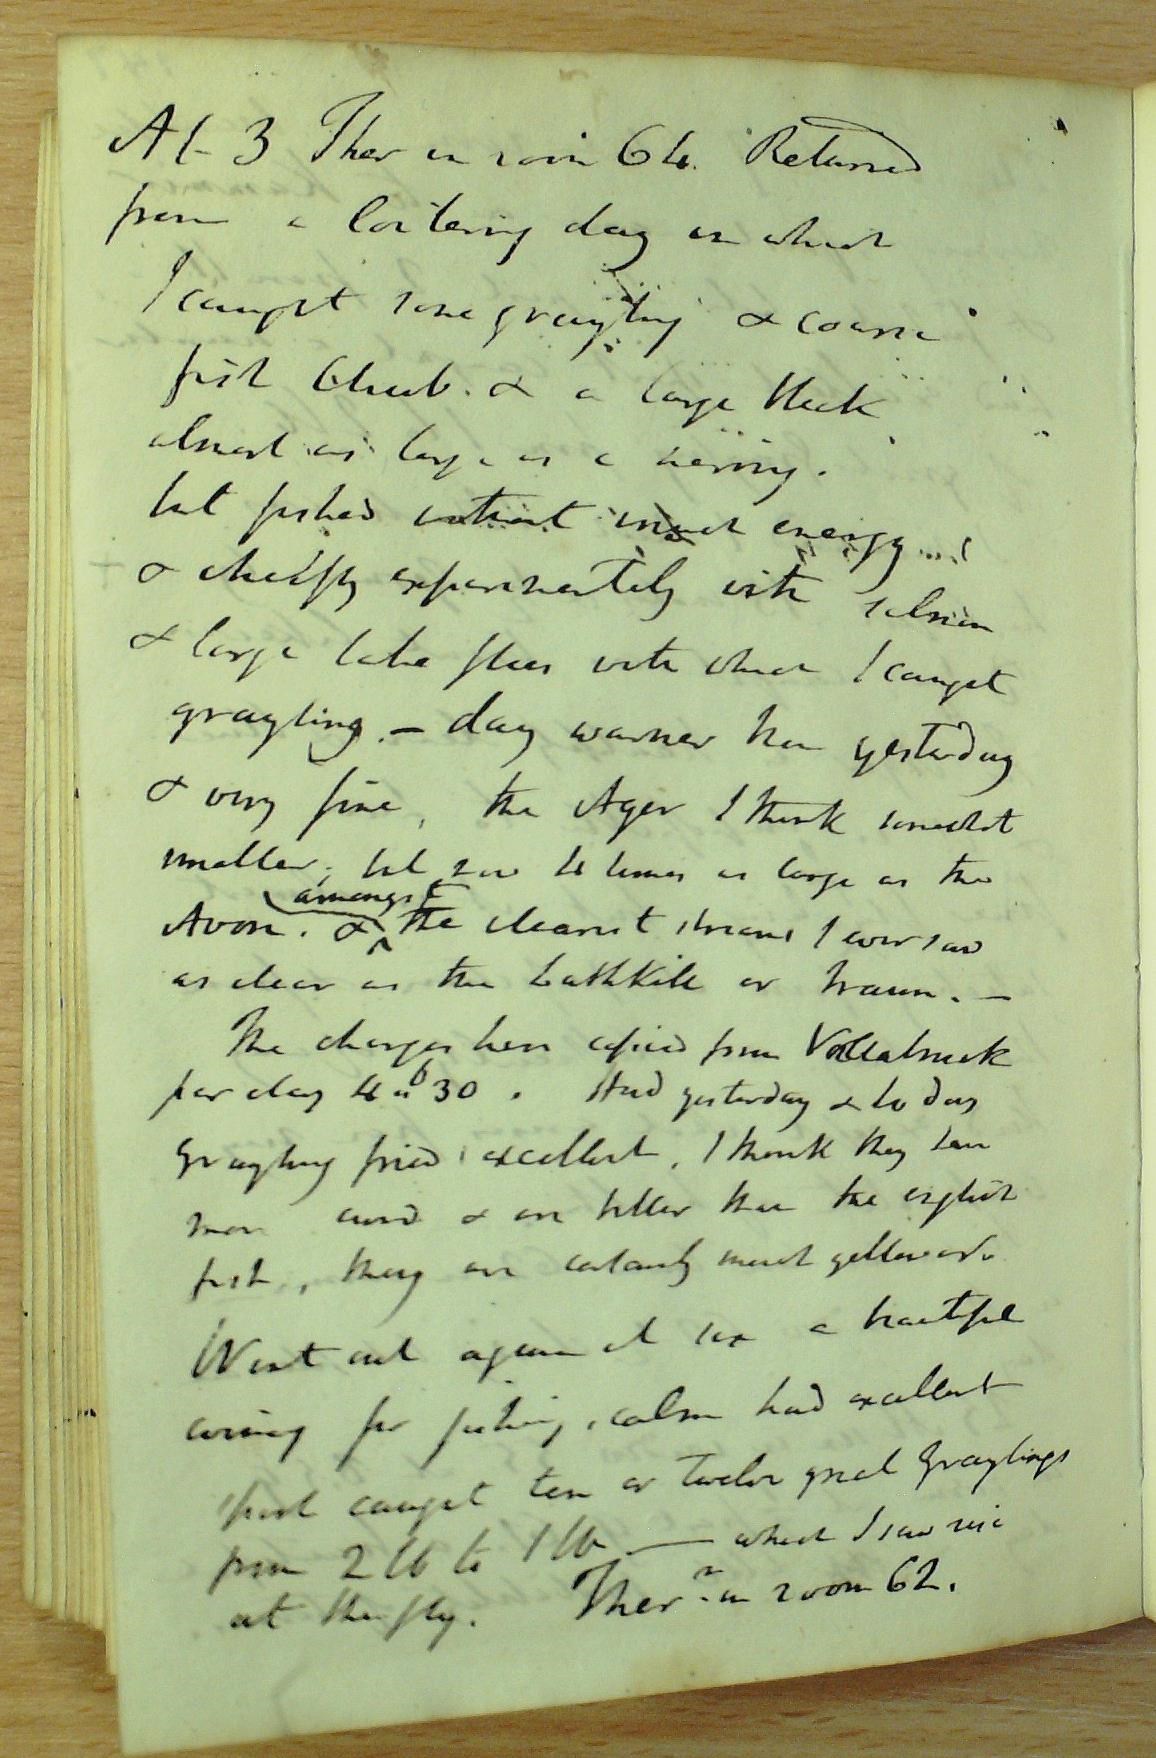 At 3 Ther in room 64. Returned
from a loitering day in which
I caught some grayling & coarse
fish Chub. & a large bleak
almost as large as a herring.
but fished without much energy
& cheifly experimentally with salmon
& large lake flies with which I caught
grayling. – day warmer than yesterday
& very fine, the Ager I think somewhat
smaller, but now 4 times as large as the
Avon. & amongst the clearest streams I ever saw
as clear as the Lathkill or Traun. –
The charges here copied from Vöcklabruck
per day 4 a 6 30. Had yesterday & to day
Grayling fried excellent, I think they have
more curd & are better than the english
fish, they are certainly much yellower.
Went out again at six a beautiful
evening for fishing, calm had excellent
sport caught ten or twelve great Graylings
from 2 lb to 1 lb — which I saw rise
at the fly. Ther.r in room 62.